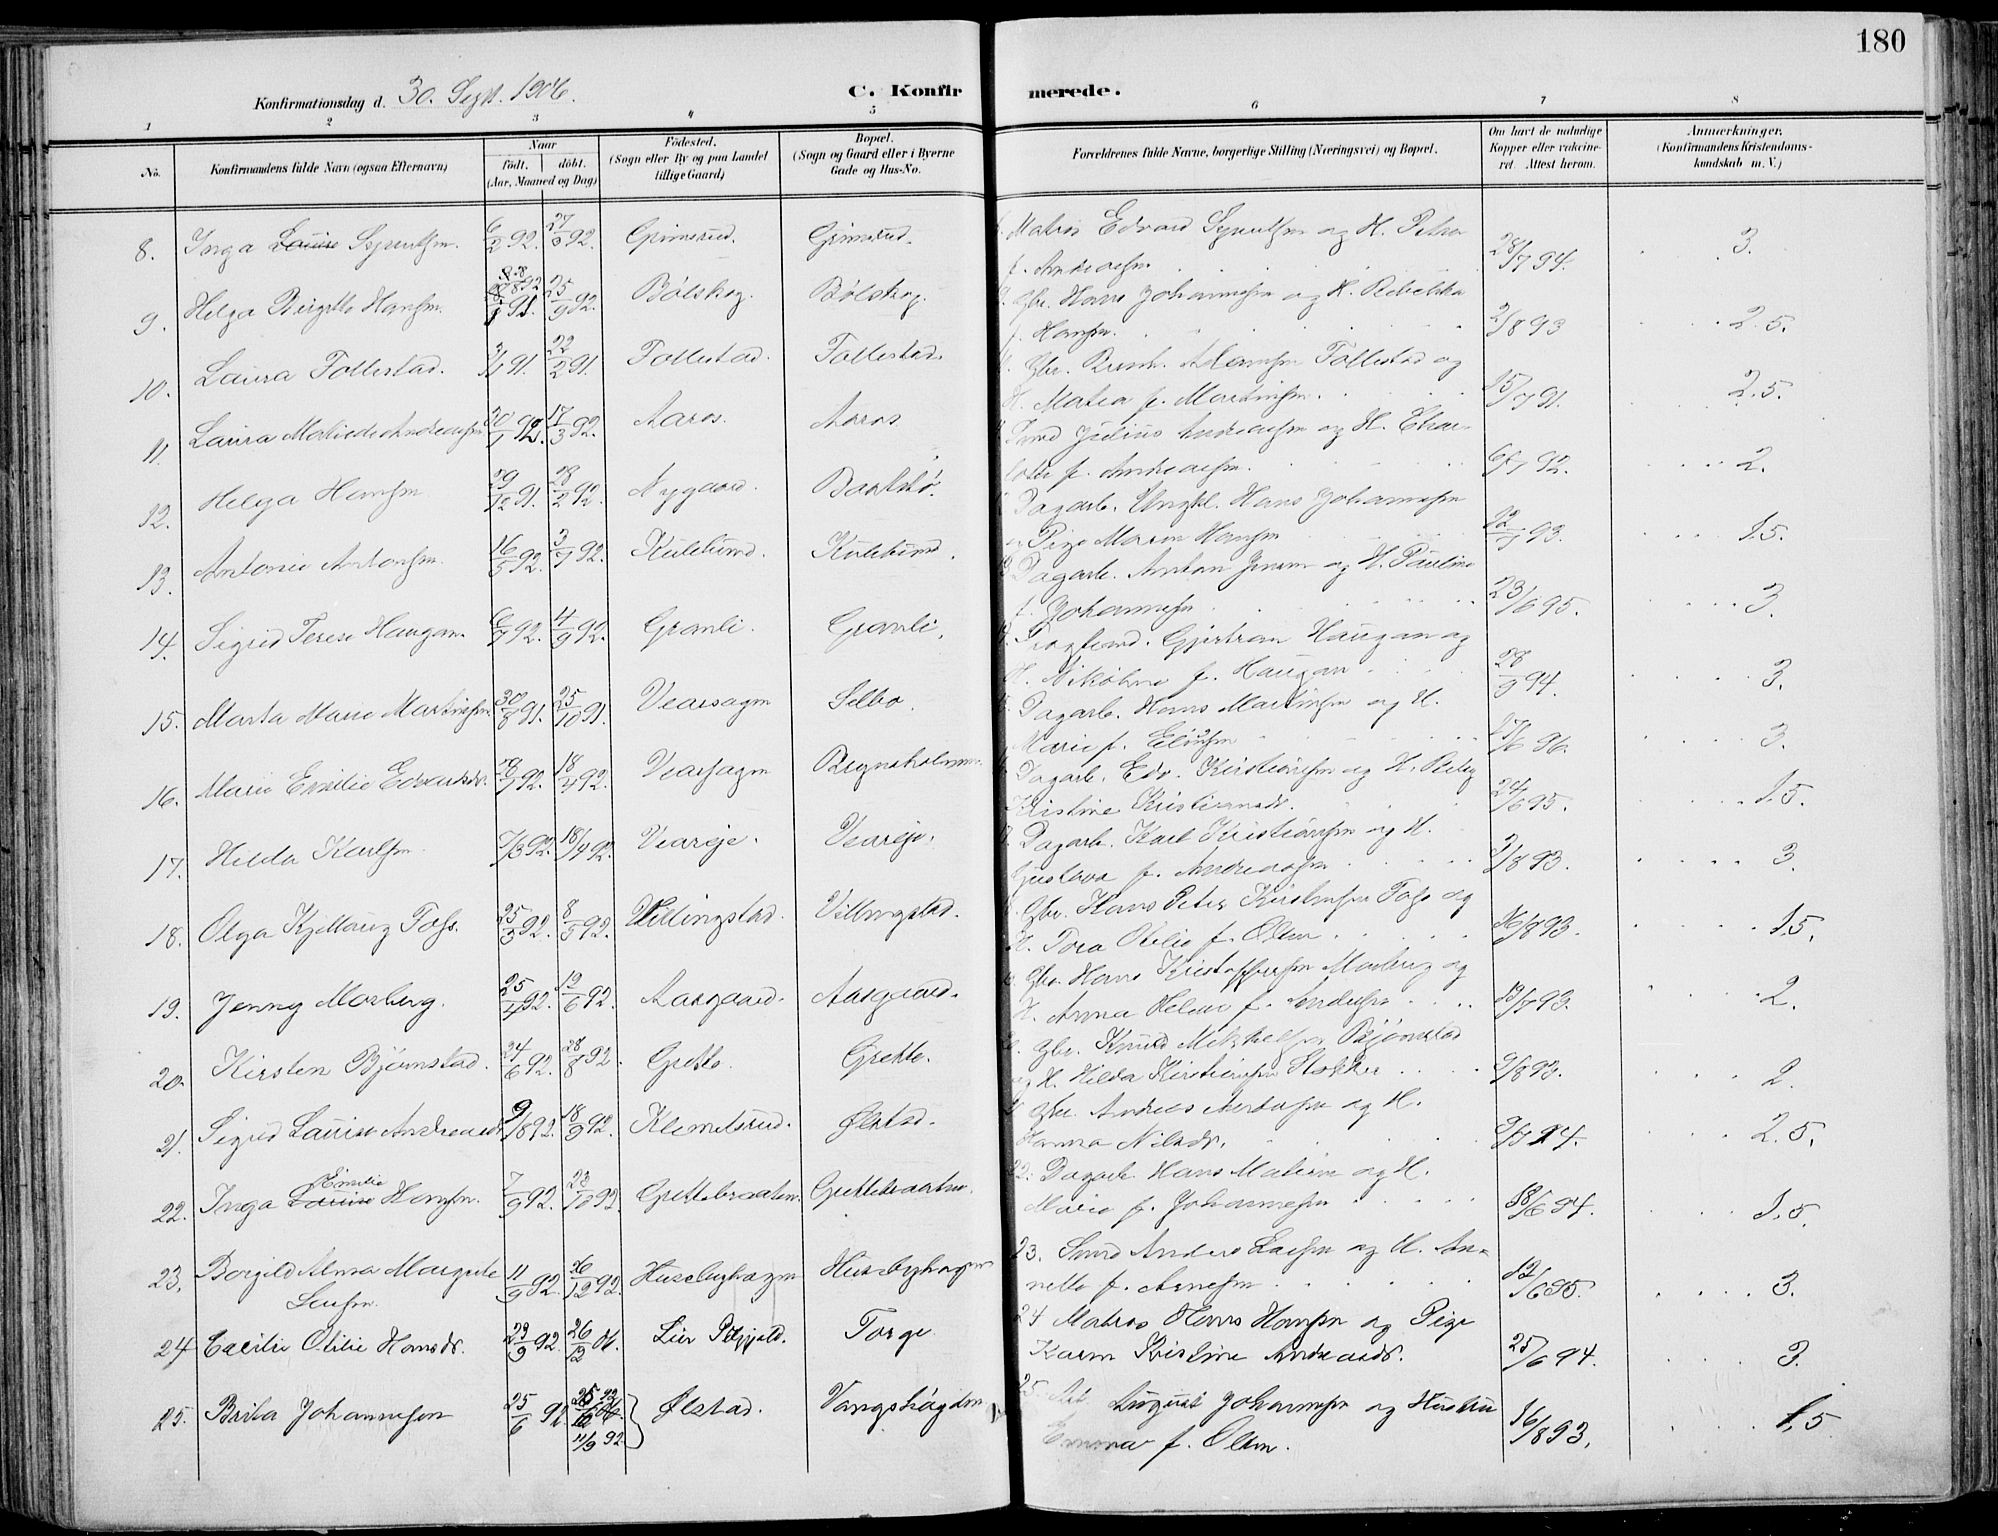 180
Konfirmationsdag d. 30. Sept. 1906.
C. Konfirmerede.
1 2 3 4 5 6 7 8
No.
Konfirmandens fulde Navn (ogsaa Efternavn)
Naar
født. døbt.
(Aar, Maaned og Dag)
Fødested.
(Sogn eller By og paa Landet
tillige Gaard)
Bopæl.
(Sogn og Gaard eller i Byerne
Gade og Hus-No.
Forældrenes fulde Navne, borgerlige Stilling (Næringsvei) og Bopæl.
Om havt de naturlige
Kopper eller vaccine-
ret. Attest herom.
Anmærkninger.
(Konfirmandens Kristendoms-
kundskab m. V.)
8. Inga Louise 6/2 92. 27/3 92. Grimsrud. Grimsrud. Matros Edvard og H. Petra
f. Andreassen 28/7 94. 3.
9. Helga Birgitte Hansen. 25/9 92. Bølskog. Bølskog. Gbr. Hans Johannessen og H. Rebekka
f. Hansen. 2/8 93 2.5.
10. Laura Tollestad. 91. 22/2 91. Tollestad. Tollestad. Gbr. Follestad og
H. Matea f. Martinsen. 15/7 91. 2.5.
11. Laura Matilde Andreassen 30/1 92. 17/3 92. Aaros. Aaros Smed Julius Andreassen og H. Char-
lotte f. Andreassen. 6/7 92. 2.
12. Helga Hansen 29/12 91. 28/2 92. Nygaard. Bakskø. Dagarb. Ungkl. Hans Johannessen
Pige Maren Hansen 12/7 93. 1.5.
13. Antonie Antonsen. 16/5 92. 3/7 92. Kulelund. Kulelund. Dagarb. Anton Jensen og H. Pauline
f. Johannessen 23/6 95. 3.
14. Sigrid Terese Haugan. 6/7 92. 4/9 92. Granli. Granli. Gjertran Haugan og
H. Nikoline f. Haugan 28/9 94. 3.
15. Marta Marie Martinsen 30/8 91. 25/10 91. Vearsagen Selbo. Dagarb. Hans Martinsen og H.
Marie f. 17/6 96. 3.
16. Marie Emilie Edvardsdr. 92. 18/4 92. Vearsagen Brynsholmen. Dagarb. Edv. Kristiansen og H.
Kristine Kristiansdr. 24/6 95. 1.5.
17. Hilda Karlsen. 7/3 92. 18/4 92. Veareje. Veareje. Dagarb. Karl Kristiansen og H.
Gustava f. Andreassen 2/8 93. 3.
18. Olga Kjellaug Foss. 25/3 92. 8/5 92. Vellingstad. Vellingstad. Gbr. Hans Peter Foss og
H. Tora Otilie f. Olsen. 16/8 93. 1.5.
19. Jenny Morberg. 25/4 92. 12/6 92. Aasgaard. Aasgaard. Gbr. Hans Kristoffersen Morberg og
H. Anna Helene f. Andersen 13/7 93. 2.
20. Kirsten Bjørnstad. 24/6 92. 28/8 92. Grette. Grette. Gbr. Knud Mikkelsen Bjørnstad
og H. Hilda Kristiansen Stokker 9/8 93. 2.
21. Sigrid Louise Andreasdr. 9/8 92. 18/9 92. Klemetsrud. Ølstad. Gbr. Andreas Andersen og H.
Hanna Nilsdr. 94. 2.5.
22. Inga Louise Emilie Hansen. 7/9 92. 23/10 92. Grettebraaten. Grettebraaten. 22. Dagarb. Hans Matisen og H.
Marie f. Johannessen 18/6 94. 1.5.
23. Borgild Alma Margrete
Larsen. 11/9 92. 26/12 92. Husebyhagen Husebyhagen 23. Smed Anders Larsen og H. An-
nette f. Arnesen 12/6 95. 3.
24 Cecilie Otilie Hansdr. 29/9 92. 26/12 Lier Torge 24 Matros Hans Hansen og Pige
Karen Kristine Andreasdr. 25/6 94. 3.
25. Brita Johannessen 25/6 92 11/9 92. Ølstad. Vangshøgden 25 August Johannessen og Hustru
Emma f. Olsen. 16/8 93. 1.5